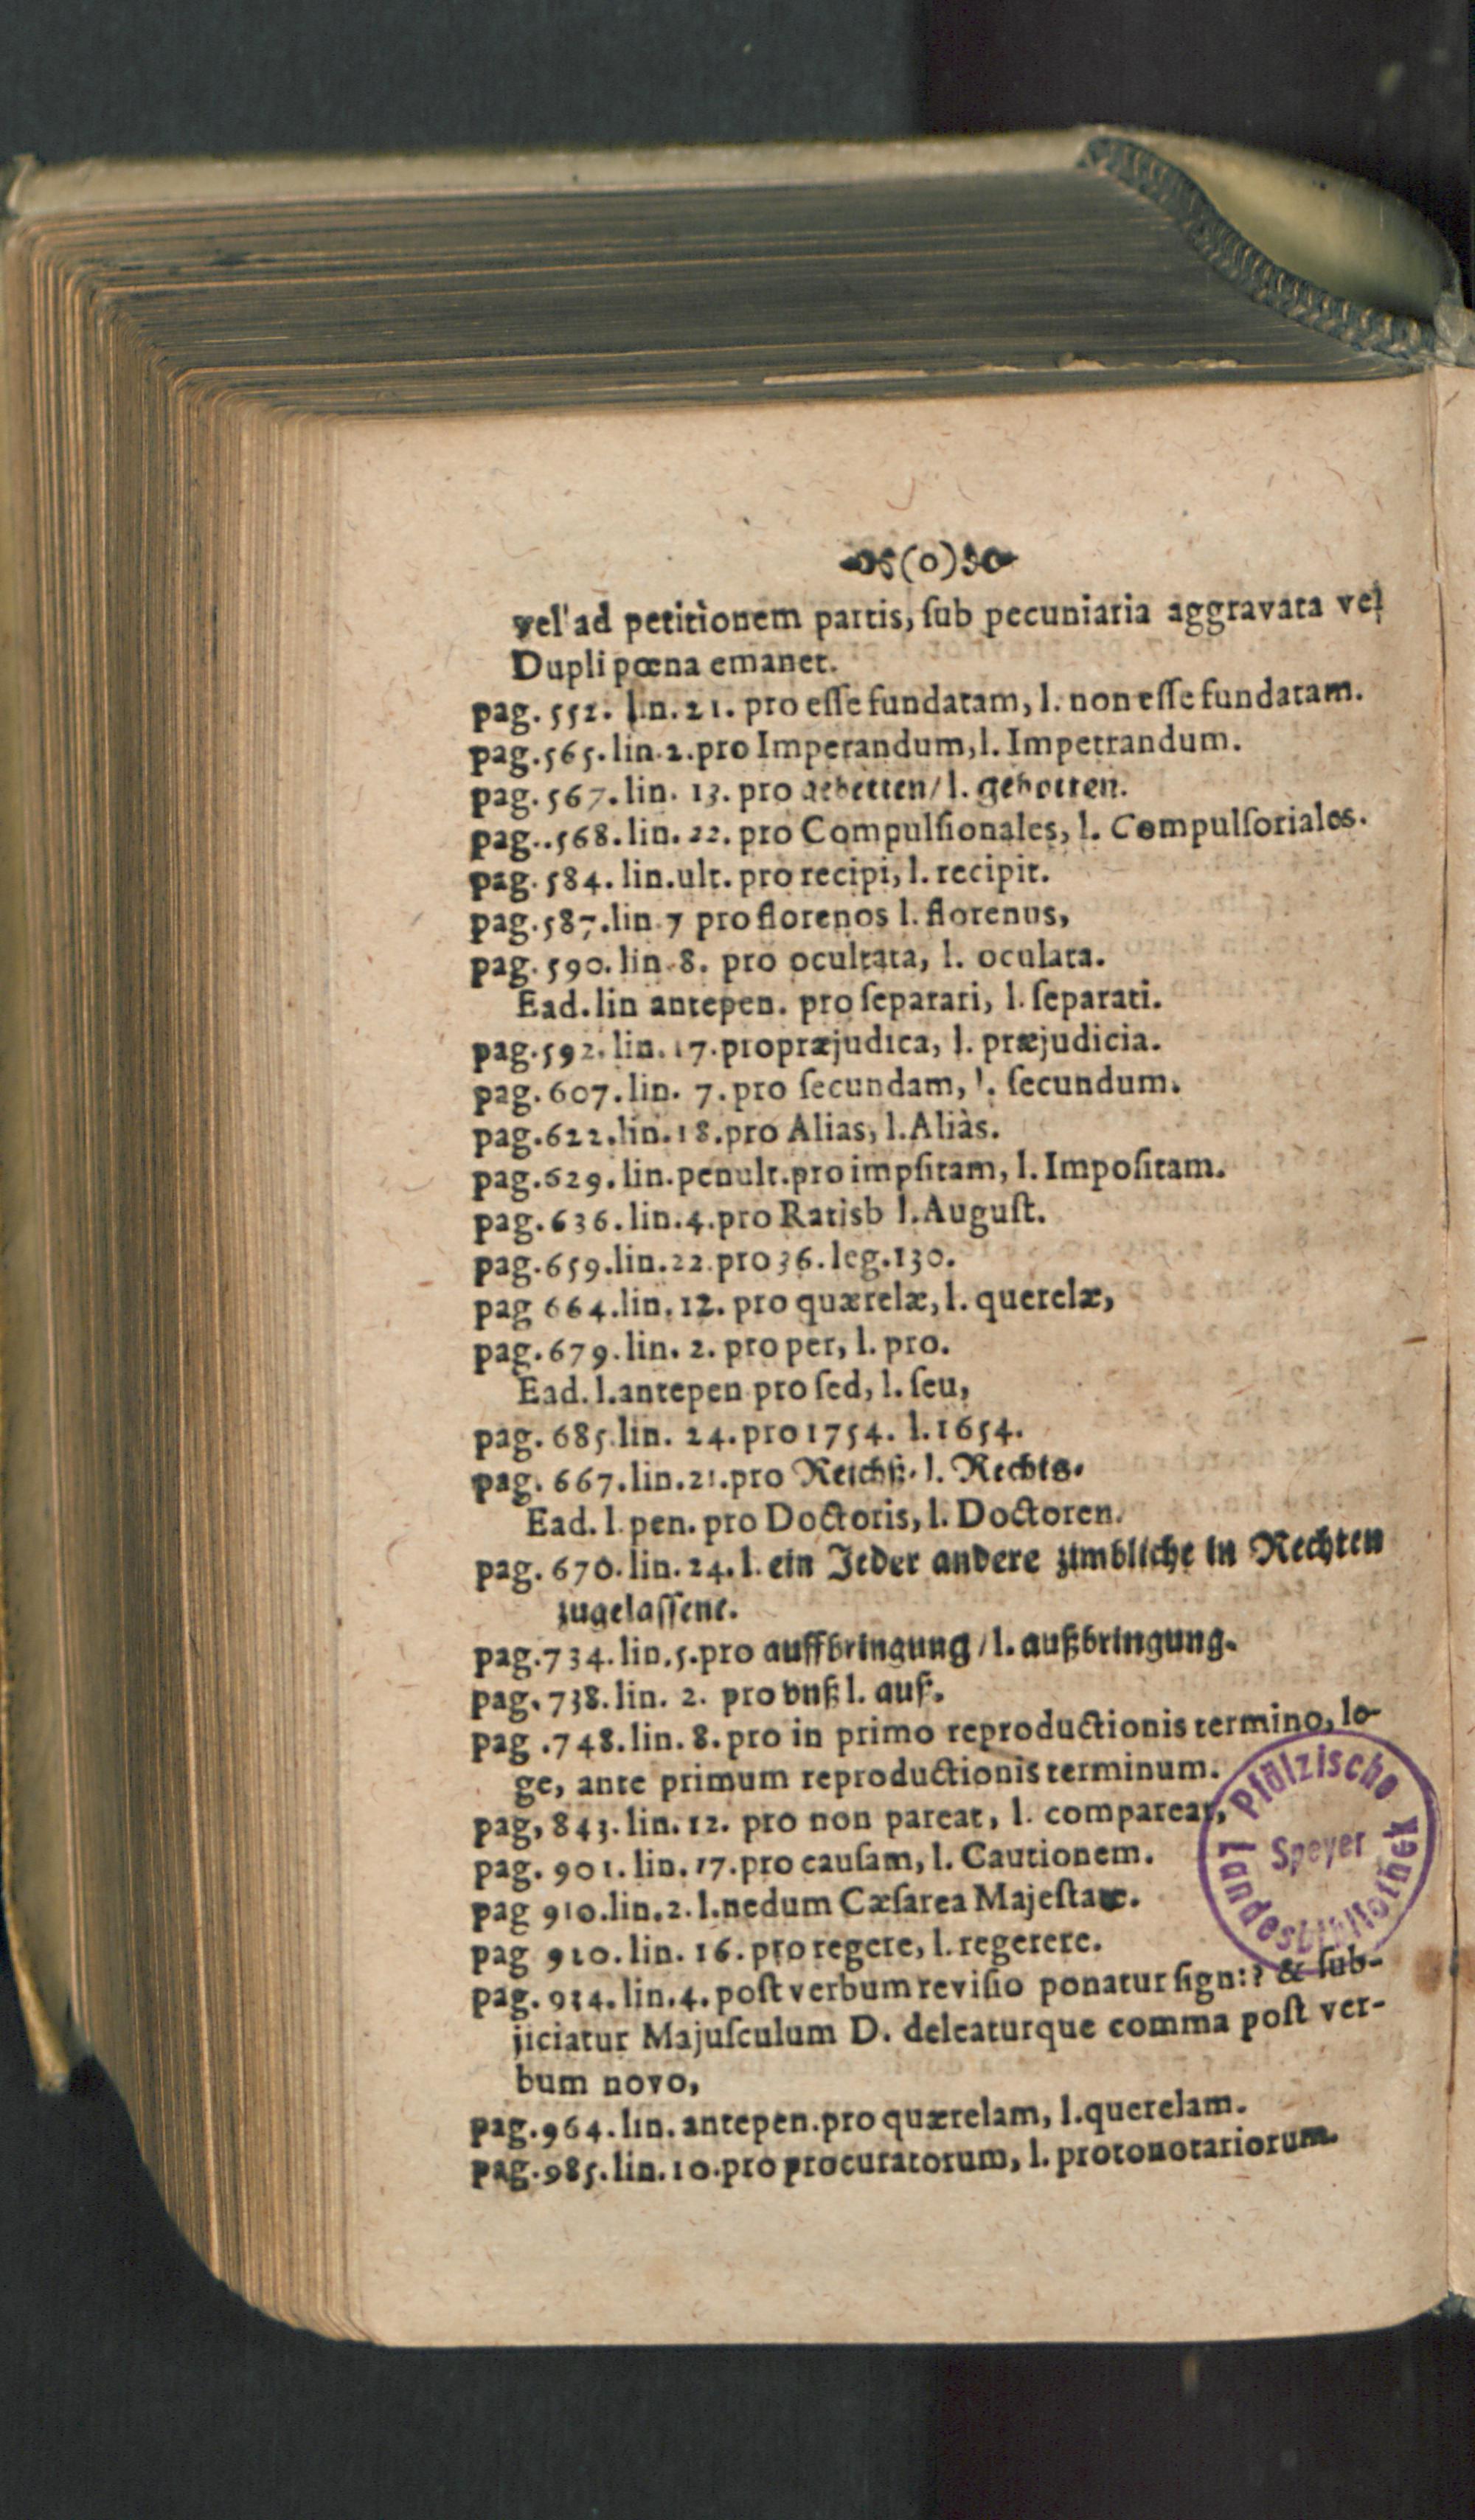 (o)
vel ad petitionem partis, ſub pecuniaria aggravata vel
Dupli pœna emanet.
pag. 552. lin. 21. pro eſſe fundatam, l. non eſſe fundatam.
pag. 565. lin. 2. pro Imperandum, l. Impetrandum.
pag. 567. lin. 13. pro gebetten / l. gebotten.
pag.. 568. lin. 22. pro Compulſionales, l. Compulſoriales.
pag. 584. lin. ult. pro recipi, l. recipit.
pag. 587. lin 7 pro florenos l. florenus,
pag. 590. lin. 8. pro ocultata, l. oculata.
Ead. lin antepen. pro ſeparari, l. ſeparati.
pag. 592. lin. 17. pro præjudica, l. præjudicia.
pag. 607. lin. 7. pro ſecundam, l. ſecundum.
pag. 622. lin. 18. pro Alias, l. Aliàs.
pag. 629. lin. penult. pro impſitam, l. Impoſitam.
pag. 636. lin. 4. pro Ratisb l. Auguſt.
pag. 659. lin. 22. pro 36. leg. 130.
pag 664. lin. 12. pro quærelæ, l. querelæ,
pag. 679. lin. 2. pro per, l. pro.
Ead. l. antepen pro ſed, l. ſeu,
pag. 685. lin. 24. pro 1754. l. 1654.
pag. 667. lin. 21. pro Reichß. l. Rechts.
Ead. l. pen. pro Doctoris, l. Doctoren.
pag. 670. lin. 24. l. ein Jeder andere zimbliche in Rechten
zugelaſſene.
pag. 734. lin. 5. pro auffbringung / l. außbringung.
pag. 738. lin. 2. pro vnß l. auß.
pag . 748. lin. 8. pro in primo reproductionis termino, le-
ge, ante primum reproductionis terminum.
pag, 843. lin. 12. pro non pareat, l. compareat,
pag. 901. lin. 17. pro cauſam, l. Cautionem.
pag 910. lin. 2. l. nedum Cæſarea Majeſtate.
pag 910. lin. 16. pro regere, l. regerere.
pag. 934. lin. 4. poſt verbum reviſio ponatur ſign: ? & ſub-
jiciatur Majuſculum D. deleaturque comma poſt ver-
bum novo,
pag. 964. lin. antepen. pro quærelam, l. querelam.
pag. 985. lin. 10. pro procuratorum, l. protonotariorum.
Pfälzische
Landesbibliothek
Speyer